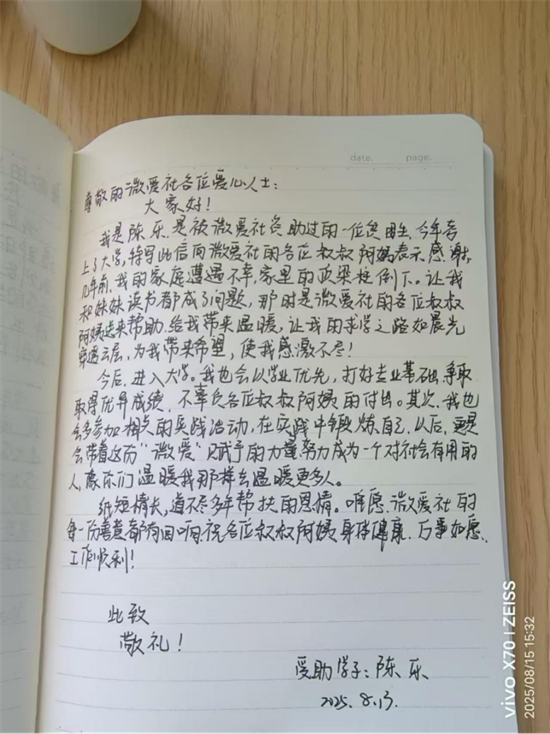 date.        page.
尊敬的微爱社各位爱心人士：
大家好！
我是陈乐，是被微爱社资助过的一位贫困生，今年考
上了大学，特写此信向微爱社的各位叔叔阿姨表示感谢。
几年前，我的家庭遭遇不幸，家里的顶梁柱倒下。让我
和妹妹读书都成了问题，那时是微爱社的各位叔叔
阿姨送来帮助，给我带来温暖，让我的求学之路如晨光
穿透云层，为我带来希望，使我感激不尽！
今后，进入大学。我也会以学业优先，打好专业基础，争取
取得优异成绩，不辜负各位叔叔阿姨的付出。其次，我也
会多参加相关的实践活动，在实践中锻炼自己，以后，更
会带着这份“微爱”赋予的力量努力成为一个对社会有用的
人，像你们温暖我那样去温暖更多人。
纸短情长，道不尽多年帮扶的恩情。唯愿微爱社的
每一份善意都有回响，祝各位叔叔阿姨身体健康，万事如愿，
工作顺利！
此致
敬礼！
受助学子：陈乐
2025.8.13.
vivo X70 | ZEISS
2025/08/15 15:32